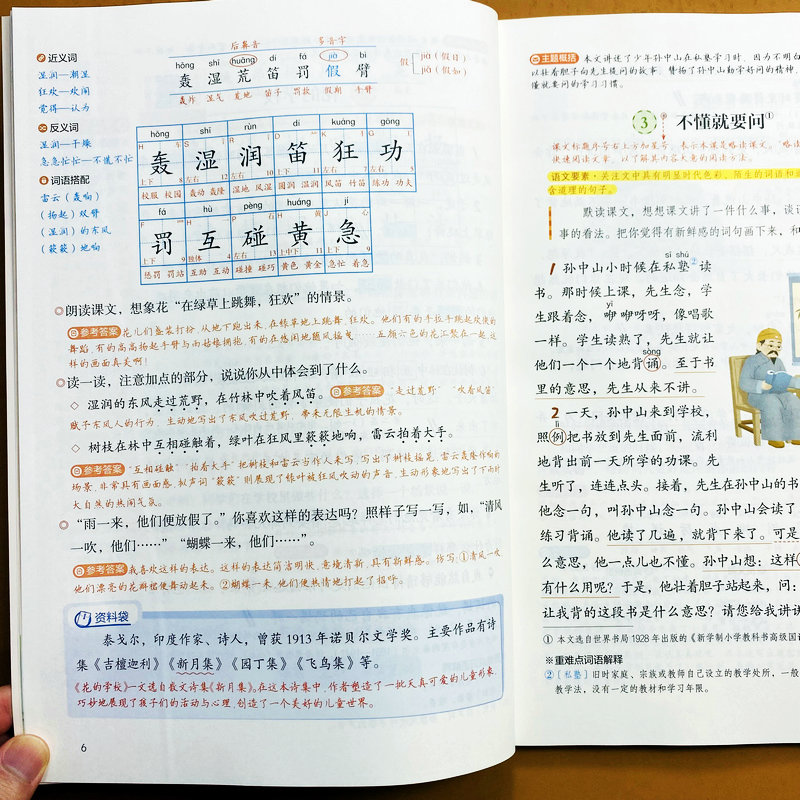 近义词
湿润—潮湿
狂欢—欢闹
觉得—认为
反义词
湿润—干燥
急急忙忙—不慌不忙
词语搭配
雷云（轰响）
（扬起）双臂
（湿润）的东风
（簌簌）地响
后鼻音 多音字
hōng shī huāng dí fá jià bì
轰 湿 荒 笛 罚 假 臂
轰炸 湿气 荒地 笛子 罚款 假期 手臂
假 jià（假日）
jiǎ（假如）
hōng shī rùn dí kuáng gōng
轰 湿 润 笛 狂 功
fá hù pèng huáng jí
罚 互 碰 黄 急
惩罚 罚站 互助 互动 碰撞 碰巧 黄色 黄金 急忙 着急
朗读课文，想象花“在绿草上跳舞，狂欢”的情景。
参考答案 花儿们盛装打扮，从地下跑出来，在绿草地上跳舞、狂欢。他们有的手拉手跳起欢快的
舞蹈，有的高高扬起手臂与雨姑娘拥抱，有的在悠闲地随风摇曳……五颜六色的花汇聚在一起，这
样的画面真美啊！
读一读，注意加点的部分，说说你从中体会到了什么。
◇ 湿润的东风走过荒野，在竹林中吹着风笛。参考答案 “走过荒野”“吹着风笛”
赋予东风人的行为，生动地写出了东风吹过荒野，带来无限生机的情景。
◇ 树枝在林中互相碰触着，绿叶在狂风里簌簌地响，雷云拍着大手。
参考答案 “互相碰触”“拍着大手”把树枝和雷云当作人来写，写出了树枝摇晃、雷云轰隆作响的
场景，非常具有画面感。拟声词“簌簌”则展现了绿叶被狂风吹动的声音，生动形象地写出了下雨时
大自然的热闹气氛。
“雨一来，他们便放假了。”你喜欢这样的表达吗？照样子写一写，如，“清风
一吹，他们……”“蝴蝶一来，他们……”。
参考答案 我喜欢这样的表达。这样的表达简洁明快，意境清新，具有新鲜感。仿写：①清风一吹，
他们漂亮的花瓣裙便舞动起来。②蝴蝶一来，他们便热情地打起了招呼。
资料袋
泰戈尔，印度作家、诗人，曾获 1913 年诺贝尔文学奖。主要作品有诗
集《吉檀迦利》《新月集》《园丁集》《飞鸟集》等。
《花的学校》一文选自散文诗集《新月集》。在这本诗集中，作者塑造了一批天真可爱的儿童形象，
巧妙地展现了孩子们的活动与心理，创造了一个美好的儿童世界。
6
主题概括 本文讲述了少年孙中山在私塾学习时，因为不明白
以壮着胆子向先生提问的故事，赞扬了孙中山勤学好问的精神，
懂就要问的学习习惯。
3 不懂就要问①
课文标题序号右上方加星号，表示本课是“略读课文”。略读
快速阅读文章，以了解其内容大意的阅读方法。
语文要素·关注文中具有明显时代色彩、陌生的词语和
含道理的句子。
默读课文，想想课文讲了一件什么事，谈
事的看法。把你觉得有新鲜感的词句画下来，和
sī shú
1 孙中山小时候在私塾②读
书。那时候上课，先生念，学
yī
生跟着念，咿咿呀呀，像唱歌
一样。学生读熟了，先生就让
sòng
他们一个一个地背诵。至于书
里的意思，先生从来不讲。
2 一天，孙中山来到学校，
lì
照例把书放到先生面前，流利
地背出前一天所学的功课。先
生听了，连连点头。接着，先生在孙中山的书
他念一句，叫孙中山念一句。孙中山会读了
练习背诵。他读了几遍，就背下来了。可是
么意思，他一点儿也不懂。孙中山想：这样
有什么用呢？于是，他壮着胆子站起来，问：
让我背的这段书是什么意思？请您给我讲讲
① 本文选自世界书局 1928 年出版的《新学制小学教科书高级国语
※重难点词语解释
②［私塾］旧时家庭、宗族或教师自己设立的教学处所，一般
教学法，没有一定的教材和学习年限。